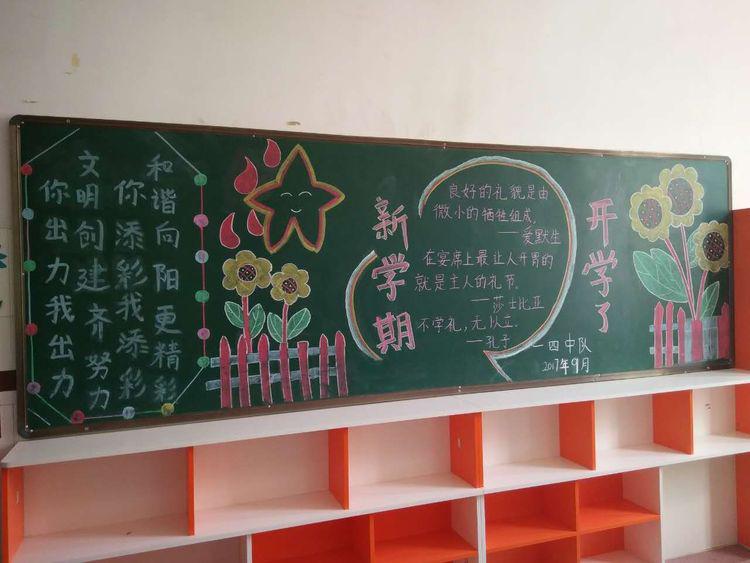 你出力我出力
文明创建齐努力
你添彩我添彩
和谐向阳更精彩
新学期
良好的礼貌是由
微小的牺牲组成。
——爱默生
在宴席上最让人开胃的
就是主人的礼节。
——莎士比亚
不学礼，无以立。
—孔子
开学了
一四中队
2017年9月